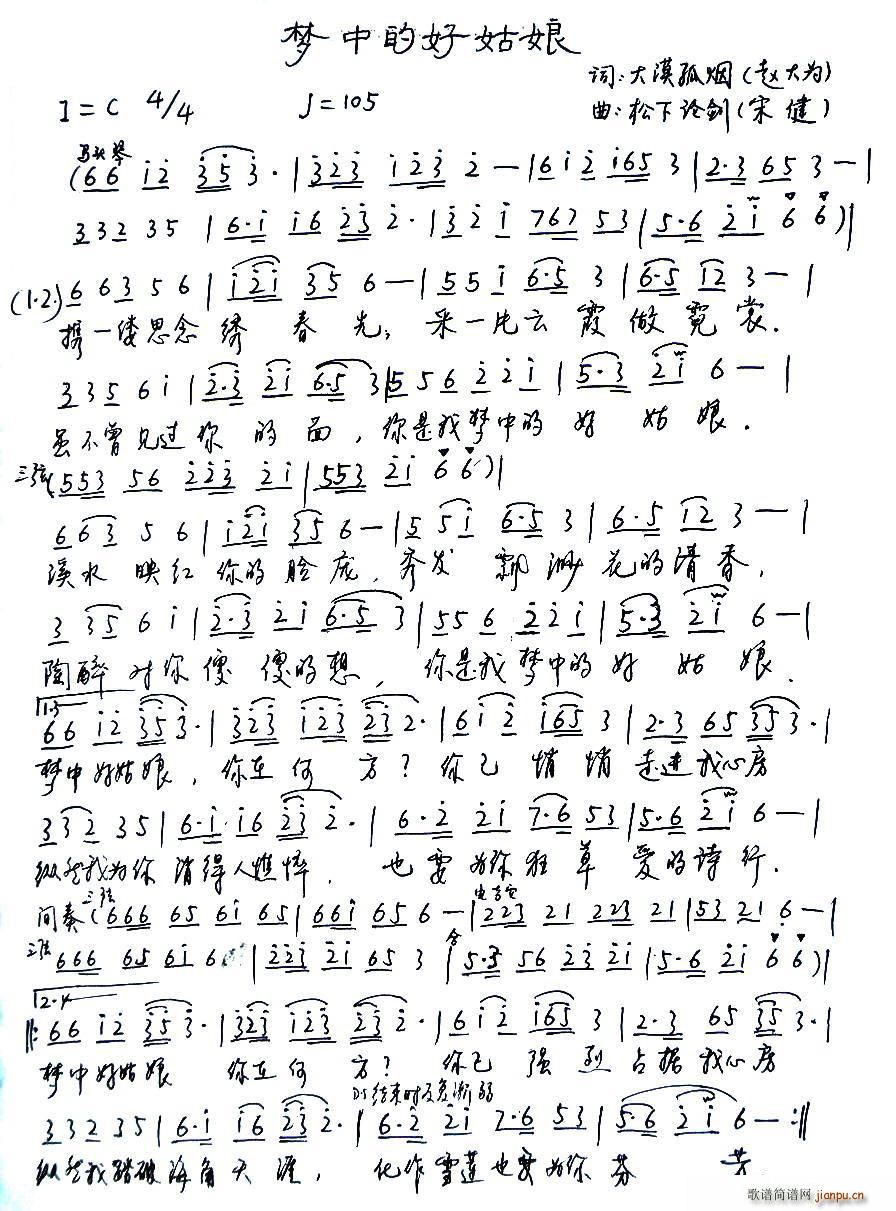 梦中的好姑娘
词:大漠孤烟(赵大为)
1=C 4/4 ♩=105
曲:松下论剑(宋健)
马头琴
(66 i2 353· | 323 123 2 — | 6i2 i65 3 | 2·3 65 3 — |
332 35 | 6·i i6 23 2· | 32i 767 53 | 5·6 2i 6 6) |
(1.2.) 6 63 5 6 | i2i 35 6 — | 55i 6·5 3 | 6·5 i2 3 — |
携一缕思念绣春光,采一片云霞做霓裳.
335 6i | 2·3 2i 6·5 3 | 556 22i | 5·3 2i 6 — |
虽不曾见过你的面,你是我梦中的好姑娘.
三弦(553 56 223 2i | 553 2i 6 6) |
663 5 6 | i2i 35 6 — | 5 5i 6·5 3 | 6·5 i2 3 — |
溪水映红你的脸庞,秀发飘渺花的清香,
3 35 6i | 2·3 2i 6·5 3 | 55 6 22i | 5·3 2i 6 — |
陶醉对你傻傻的想,你是我梦中的好姑娘.
1.3
66 i2 353· | 323 i23 23 2· | 6i2 i65 3 | 2·3 65 353· |
梦中好姑娘,你在何方?你已悄悄走进我心房
332 35 | 6·i i6 23 2· | 6·2 2i 7·6 53 | 5·6 2i 6 — |
纵然我为你消得人憔悴,也要为你狂草爱的诗行.
三弦 电吉它
间奏(666 65 6i 65 | 66i 65 6 — | 223 21 223 21 | 53 21 6 — |
三弦 合
666 65 6i 6 | 223 2i 65 3 | 5·3 56 23 2i | 5·6 2i 6 6) |
2.4
‖: 66 i2 353· | 323 i23 23 2· | 6i2 i65 3 | 2·3 65 353· |
梦中好姑娘 你在何方?你已强烈占据我心房
DS结束时反复渐弱
332 35 | 6·i i6 23 2· | 6·2 2i 7·6 53 | 5·6 2i 6 — :‖
纵然我踏破海角天涯,化作雪莲也要为你芬芳
歌谱简谱网 jianpu.cn